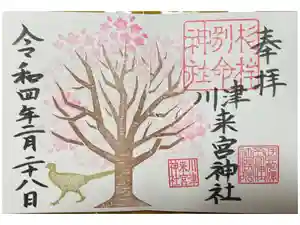 奉拝
杉桙
別命
神社
川津来宮神社
令和四年二月二十八日